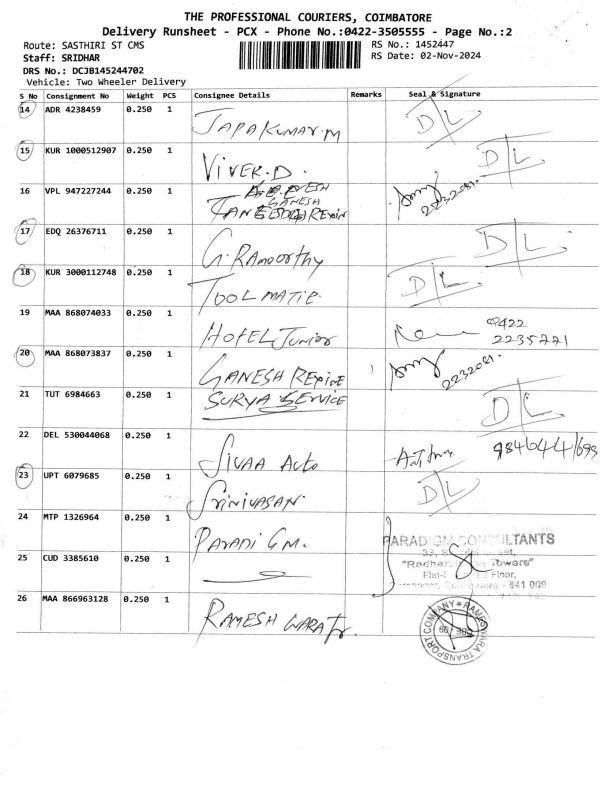 THE PROFESSIONAL COURIERS, COIMBATORE
Delivery Runsheet - PCX - Phone No.:0422-3505555 - Page No.:2
Route: SASTHIRI ST CMS
RS No.: 1452447
Staff: SRIDHAR
RS Date: 02-Nov-2024
DRS No.: DCJB145244702
Vehicle: Two Wheeler Delivery
S No Consignment No Weight PCS Consignee Details Remarks Seal & Signature
14 ADR 4238459 0.250 1 JAPAKUMAR.M D/L
15 KUR 1000512907 0.250 1 VIVEK.D. D/L
16 VPL 947227244 0.250 1 GANESH 2232081.
17 EDQ 26376711 0.250 1 G.RAmoorthy D/L
18 KUR 3000112748 0.250 1 TOOL MATIC. D/L
19 MAA 868074033 0.250 1 HOTEL Junior 0422
2235771
20 MAA 868073837 0.250 1 GANESH REXINE 2232081.
21 TUT 6984663 0.250 1 SURYA SERVICE D/L
22 DEL 530044068 0.250 1 SIVAA Auto
23 UPT 6079685 0.250 1 SRINIVASAN. D/L
24 MTP 1326964 0.250 1 PARADIGM.
PARADIGM CONSULTANTS
"Radha Towers"
Floor,
- 641 009
25 CUD 3385610 0.250 1
26 MAA 866963128 0.250 1 RAMESHWARA Tr.
RAMESHWARA TRANSPORT COMPANY